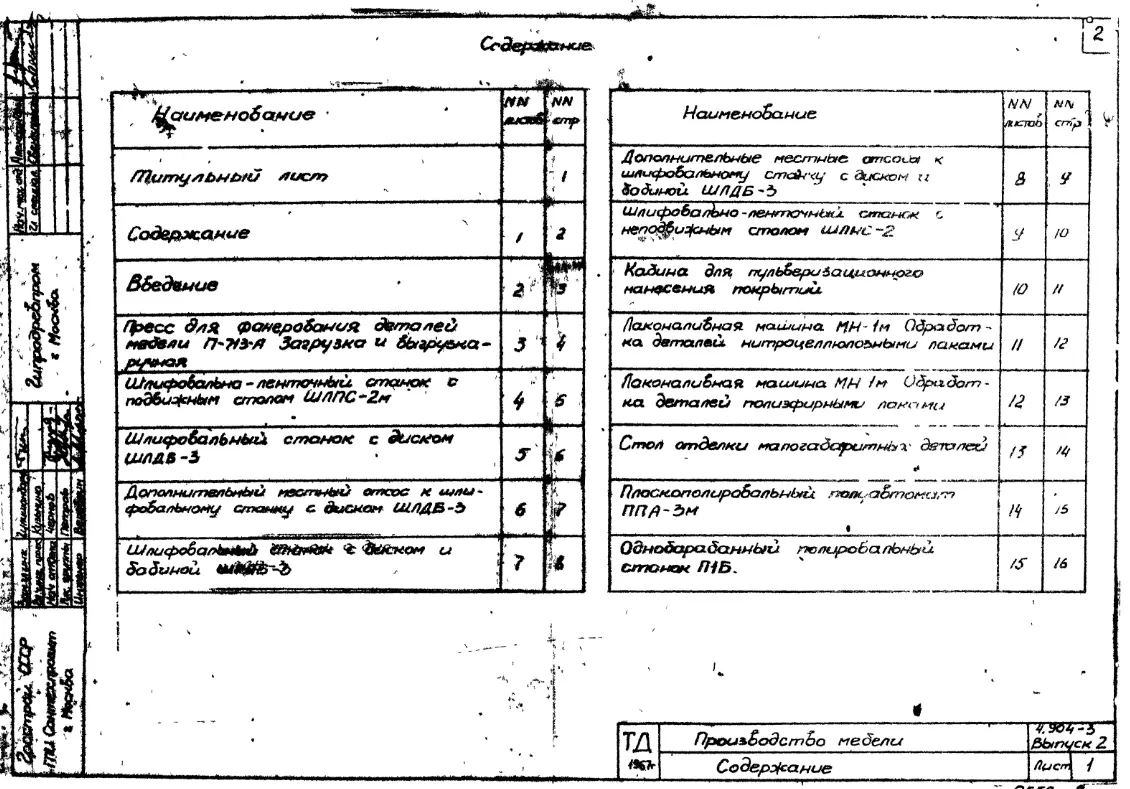 Содержание
2
Наименование
NN листов
NN стр
Титульный лист
1
Содержание
1
2
Введение
2
3
Пресс для фанерования деталей
мебели П-713-А Загрузка и выгрузка-
ручная
3
4
Шлифовально-ленточный станок с
подвижным столом ШЛПС-2м
4
5
Шлифовальный станок с диском
ШЛДБ-3
5
6
Дополнительный местный отсос к шли-
фовальному станку с диском ШЛДБ-3
6
7
Шлифовальный станок с диском и
бобиной ШЛДБ-3
7
8
Наименование
NN листов
NN стр
Дополнительные местные отсосы к
шлифовальному станку с диском и
бобиной ШЛДБ-3
8
9
Шлифовально-ленточный станок с
неподвижным столом ШЛНС-2
9
10
Кабина для пульверизационного
нанесения покрытий
10
11
Лаконаливная машина МН-1м Обработ-
ка деталей нитроцеллюлозными лаками
11
12
Лаконаливная машина МН 1м Обработ-
ка деталей полиэфирными лаками
12
13
Стол отделки малогабаритных деталей
13
14
Плоскополировальный полуавтомат
ППА-3м
14
15
Однобарабанный полировальный
станок П1Б.
15
16
ТД
1967г
Производство мебели
4.904-3
Выпуск 2
Содержание
Лист 1
Гипродревпром
г Москва
Госстрой СССР
ГПИ Сантехпроект
г Москва